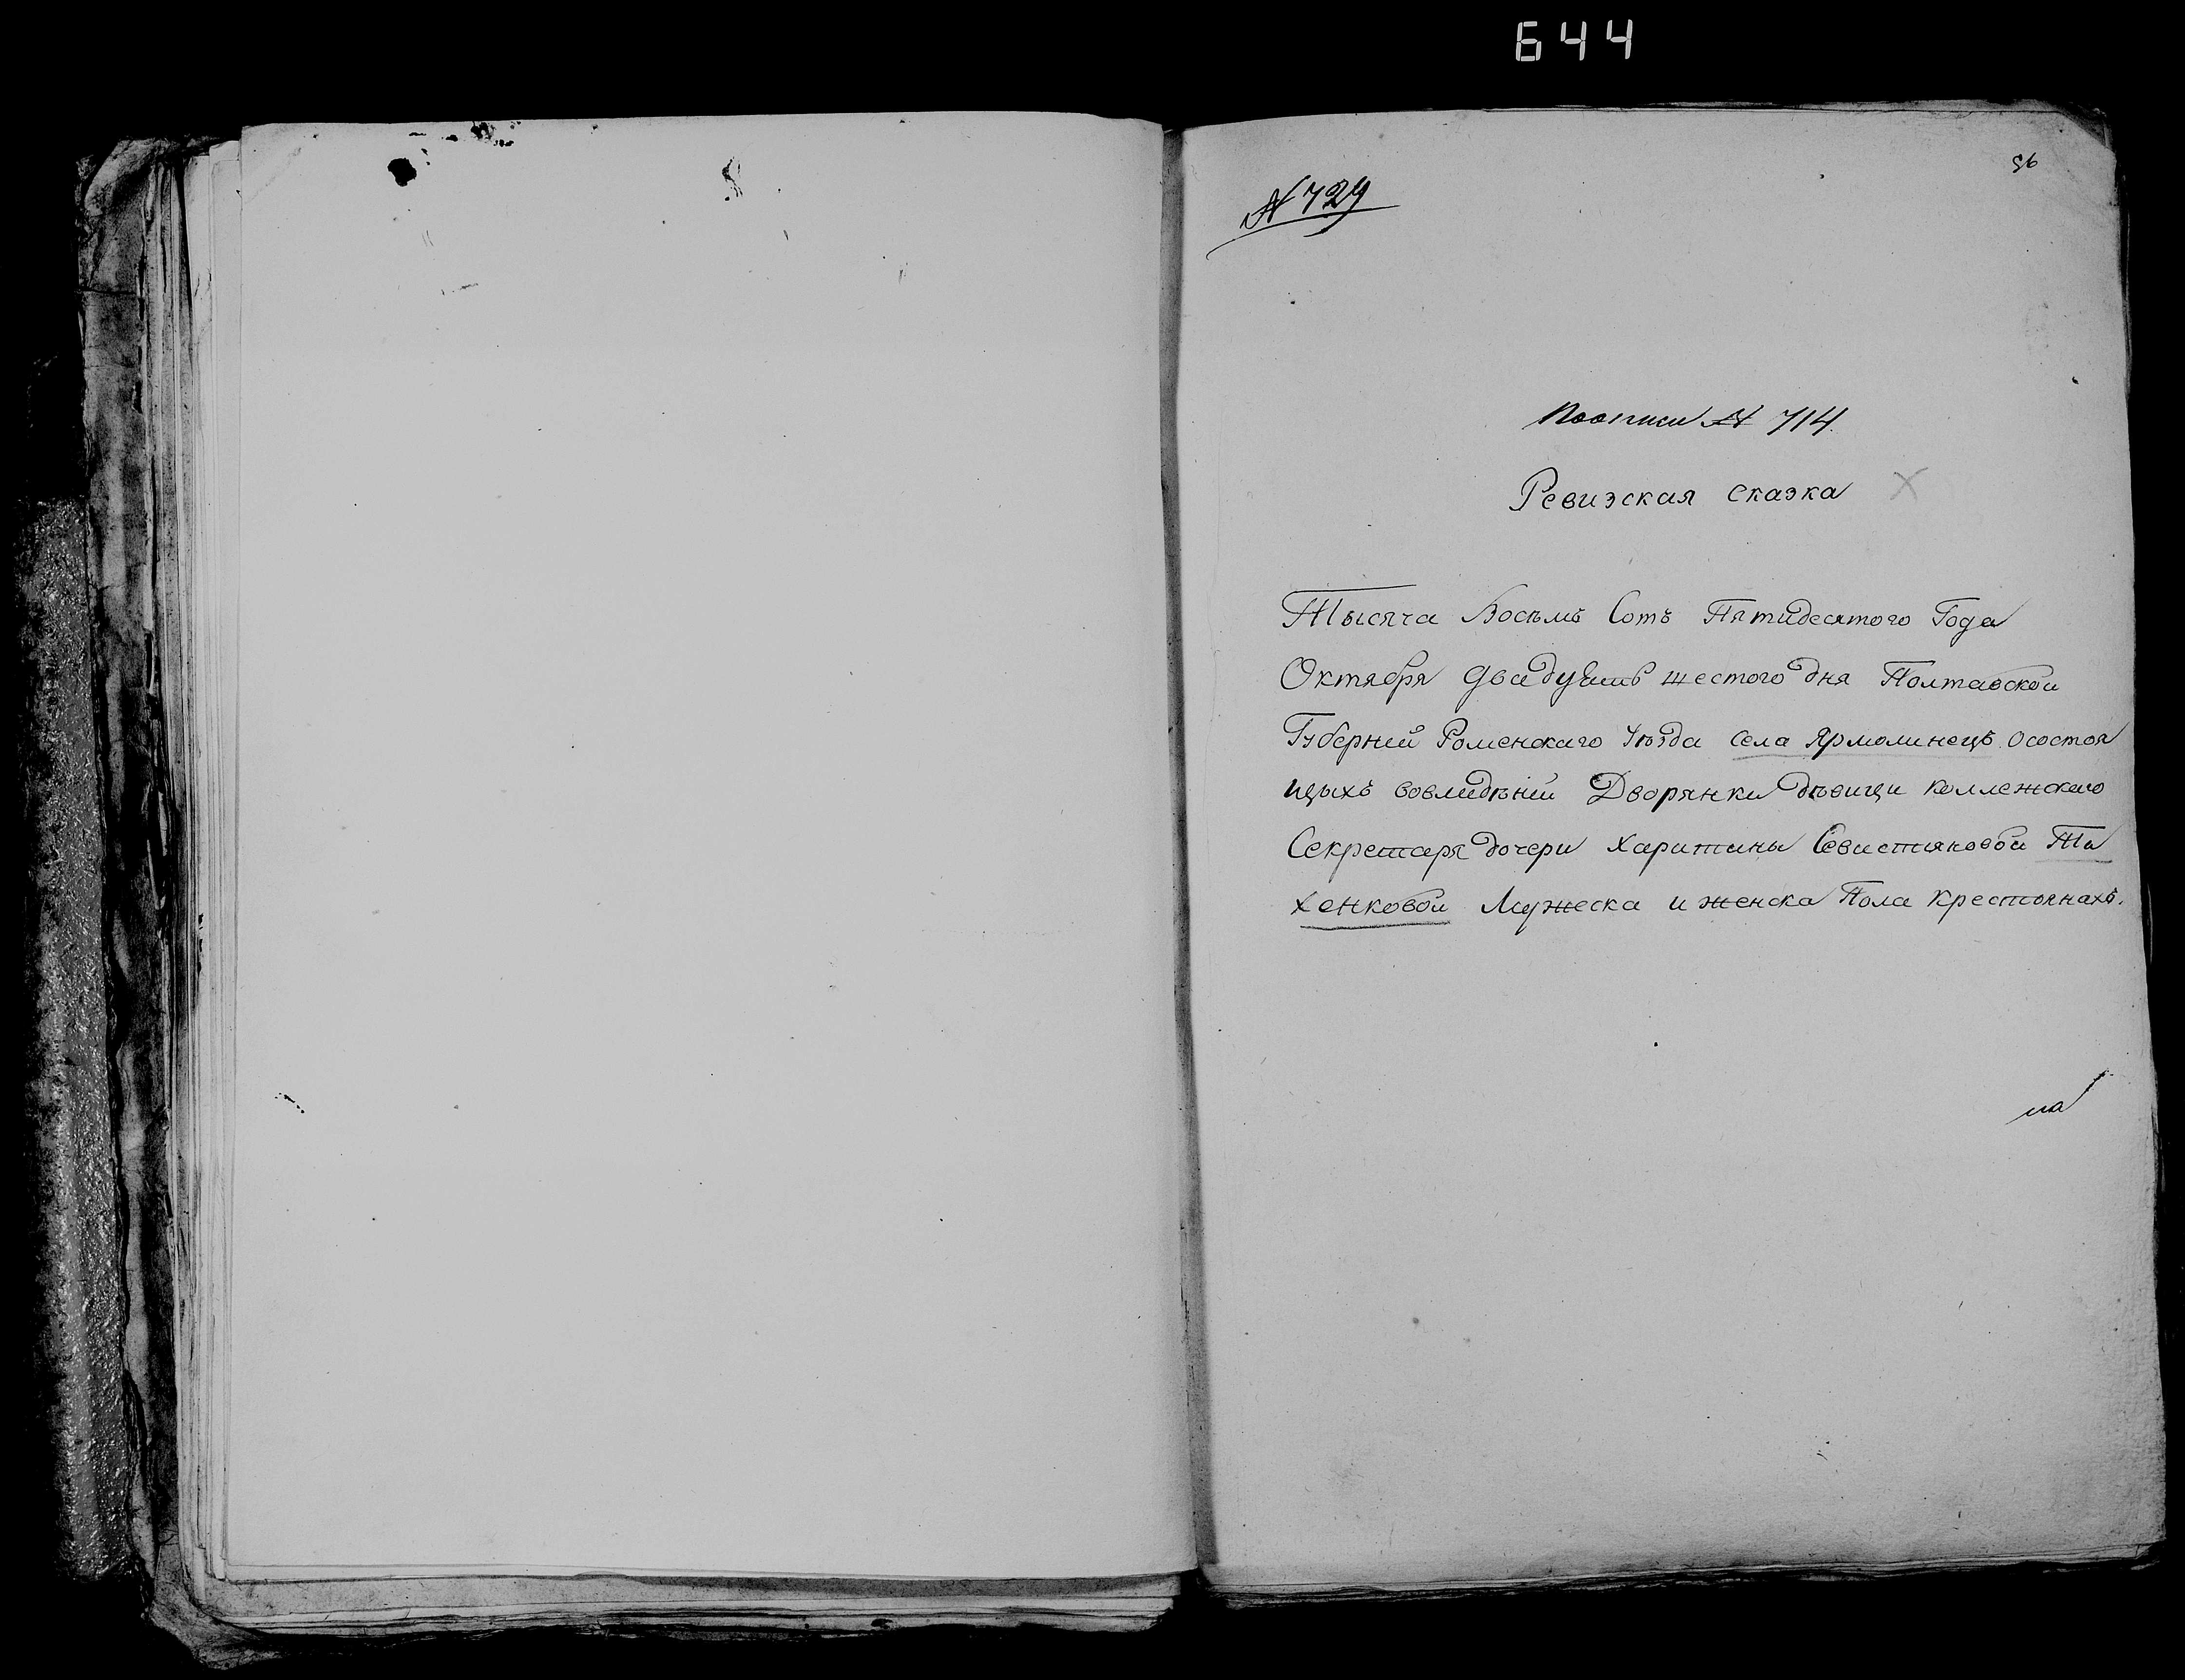 644
96
№ 729
По описи № 714
Ревизская сказка
Тысяча Восемь Сотъ Пятидесятого Года
Октября двадцать шестого дня Полтавской
Губерніи Роменскаго Уѣзда села Ярмолинецъ осостоя
щыхъ вовладѣніи Дворянки дѣвицы коллежскаго
Секретаря дочери Харитины Севастяновой Та
хенковой Мужеска и женска Пола крестьянахъ.